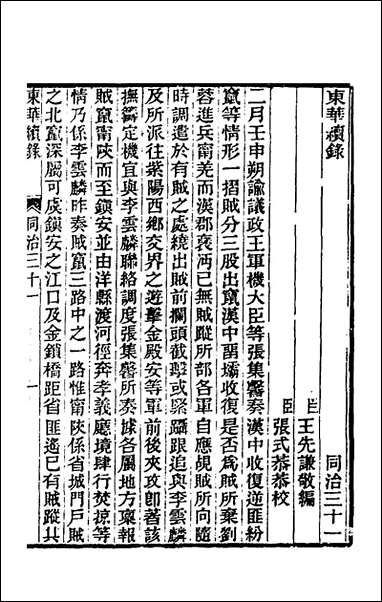 東華續錄　同治三十一
臣王先謙敬編
臣張式恭恭校
二月壬申朔諭議政王軍機大臣等張集馨奏漢中收復逆匪紛
竄等情形一摺賊分三股出竄漢中留壩收復是否爲賊所棄劉
蓉進兵甯羌而漢郡褒沔已無賊蹤所部各軍自應覘賊所向隨
時調遣於有賊之處繞出賊前攔頭截擊或緊躡跟追與李雲麟
及所派往紫陽西鄉交界之遊擊金殿安等軍前後夾攻卽著該
撫籌定機宜與李雲麟聯絡調度張集馨所奏據各屬地方稟報
賊竄甯陝而至鎮安並由洋縣渡河徑奔孝義廳境肆行焚掠等
情乃係李雲麟昨奏賊竄三路中之一路惟甯陝係省城門戶賊
之北竄深屬可虞鎮安之江口及金鎖橋距省匪遙已有賊蹤其
東華續錄　同治三十一　一